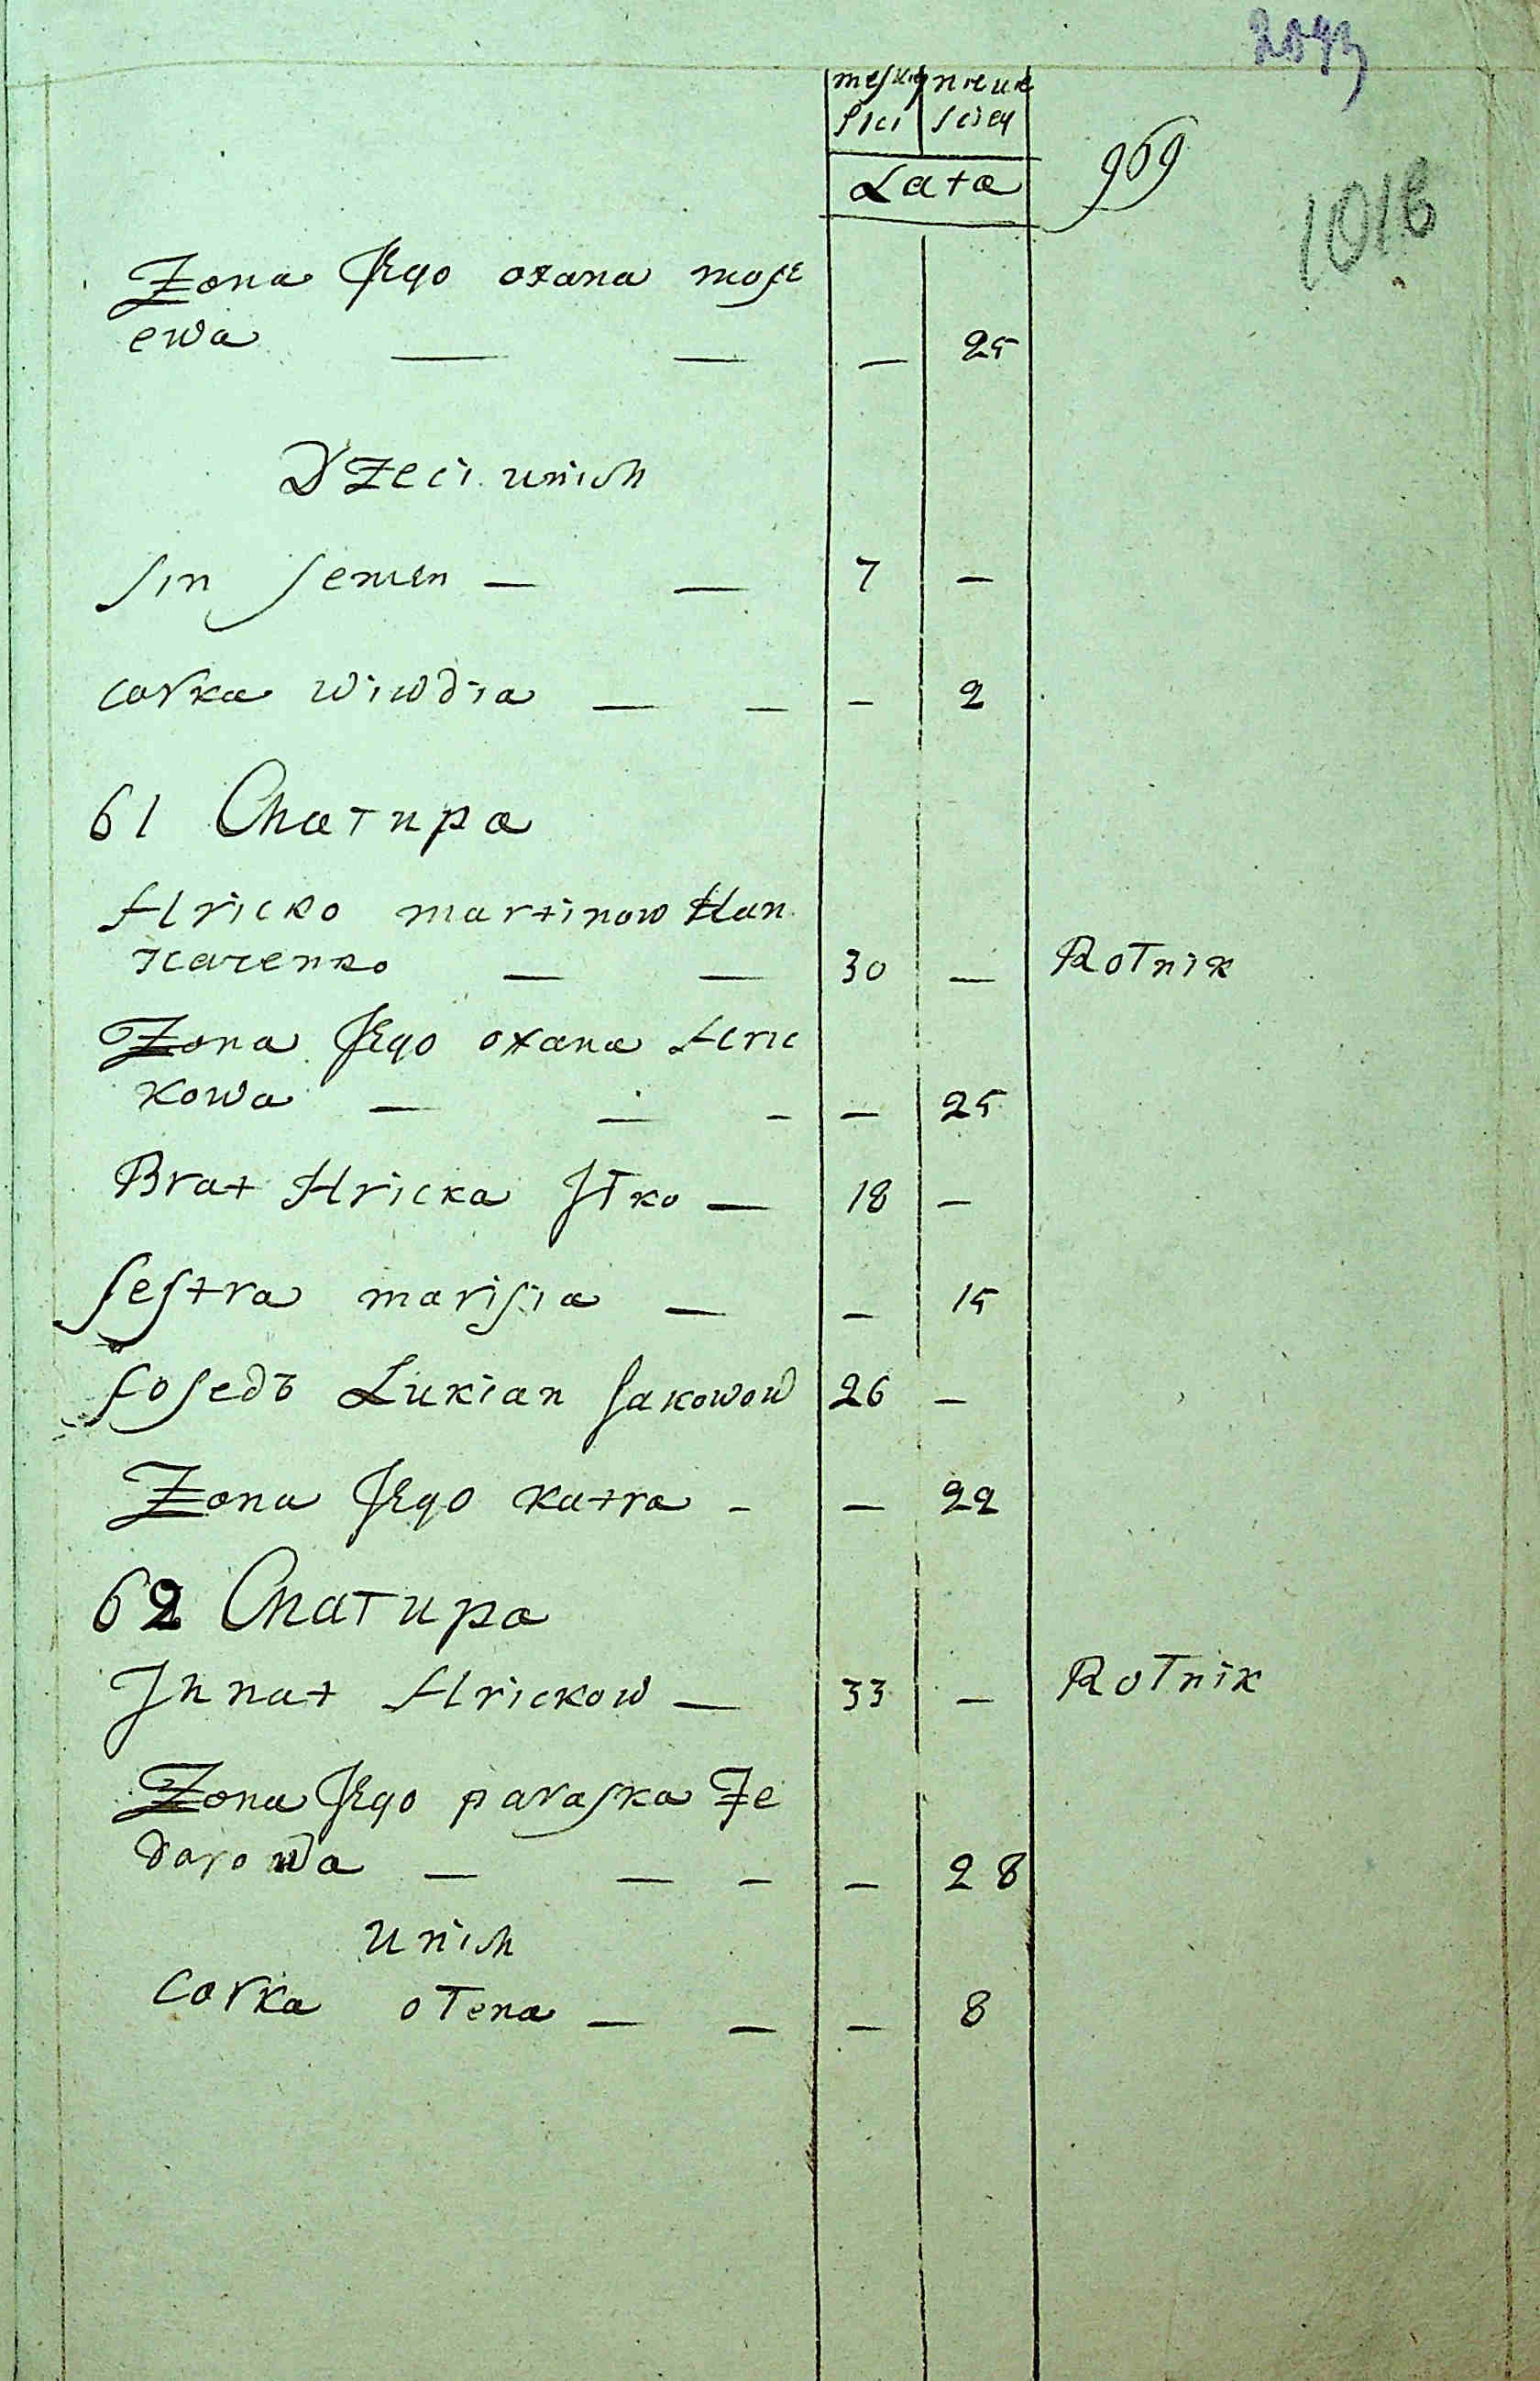 2093
męskiey niewie
płci sciey
Lata
969
1016
Zona Jego oxana mosie
ewa — — — 25
Dzeci unich
Sin Semen — — 7 —
corka wiwdia — — — 2
61 Chałupa
Hricko martinow Han
— — 30 — Rolnik
Zona Jego oxana Hric
kowa — — - — 25
Brat Hricka Ilko — 18 —
Sestra marisia — — 15
sosedъ Lukian Jakowow 26 —
Zona Jego katra - — 22
62 Chałupa
Ihnat Hrickow — 33 — Rolnik
Zona Jego paraska Fe
dorowa — — - — 28
unich
Corka olena — — — 8